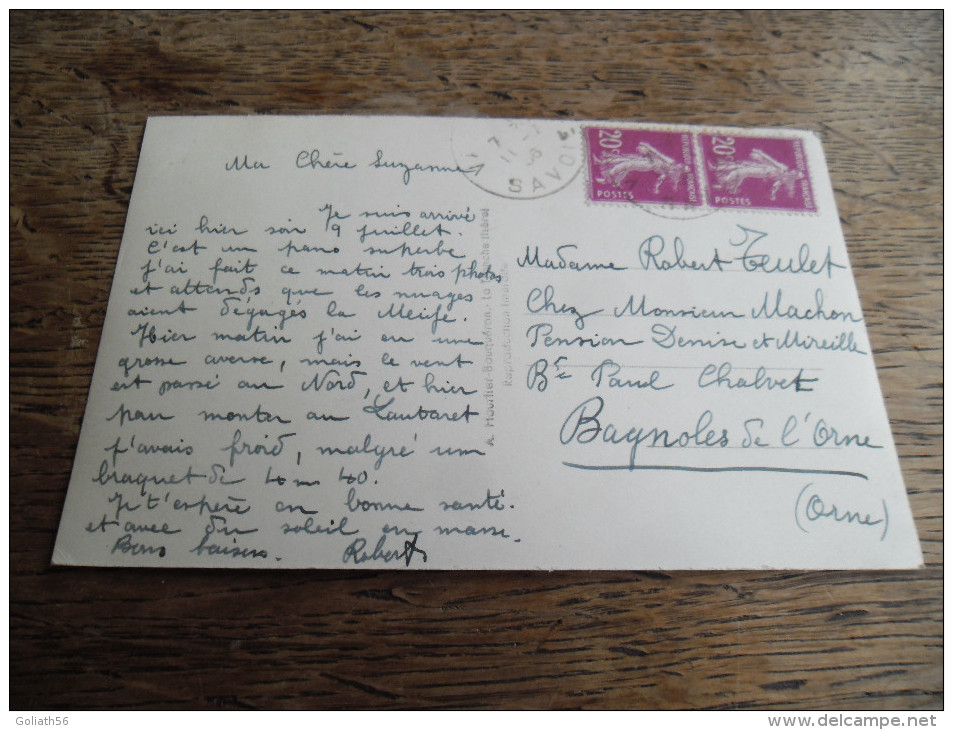 Ma Chère Suzanne
Je suis arrivé
ici hier soir 9 juillet.
C'est un pano superbe
j'ai fait ce matin trois photos
et attends que les nuages
aient dégagés la Meije.
Hier matin j'ai eu une
grosse averse, mais le vent
est passé au Nord, et hier
pour monter au Lautaret
j'avais froid, malgré un
braquet de 40.
Je t'espère en bonne santé.
et avec du soleil en masse.
Bons baisers. Robert
A. Mourlier-Bouquéron - La Tronche (Isère)
Reproduction Interdite
SAVOIE
20c
POSTES
20c
POSTES
Madame Robert Teulet
Chez Monsieur Machon
Pension Denise et Mireille
Bd Paul Chalvet
Bagnoles de l'Orne
(Orne)
Goliath56
www.delcampe.net